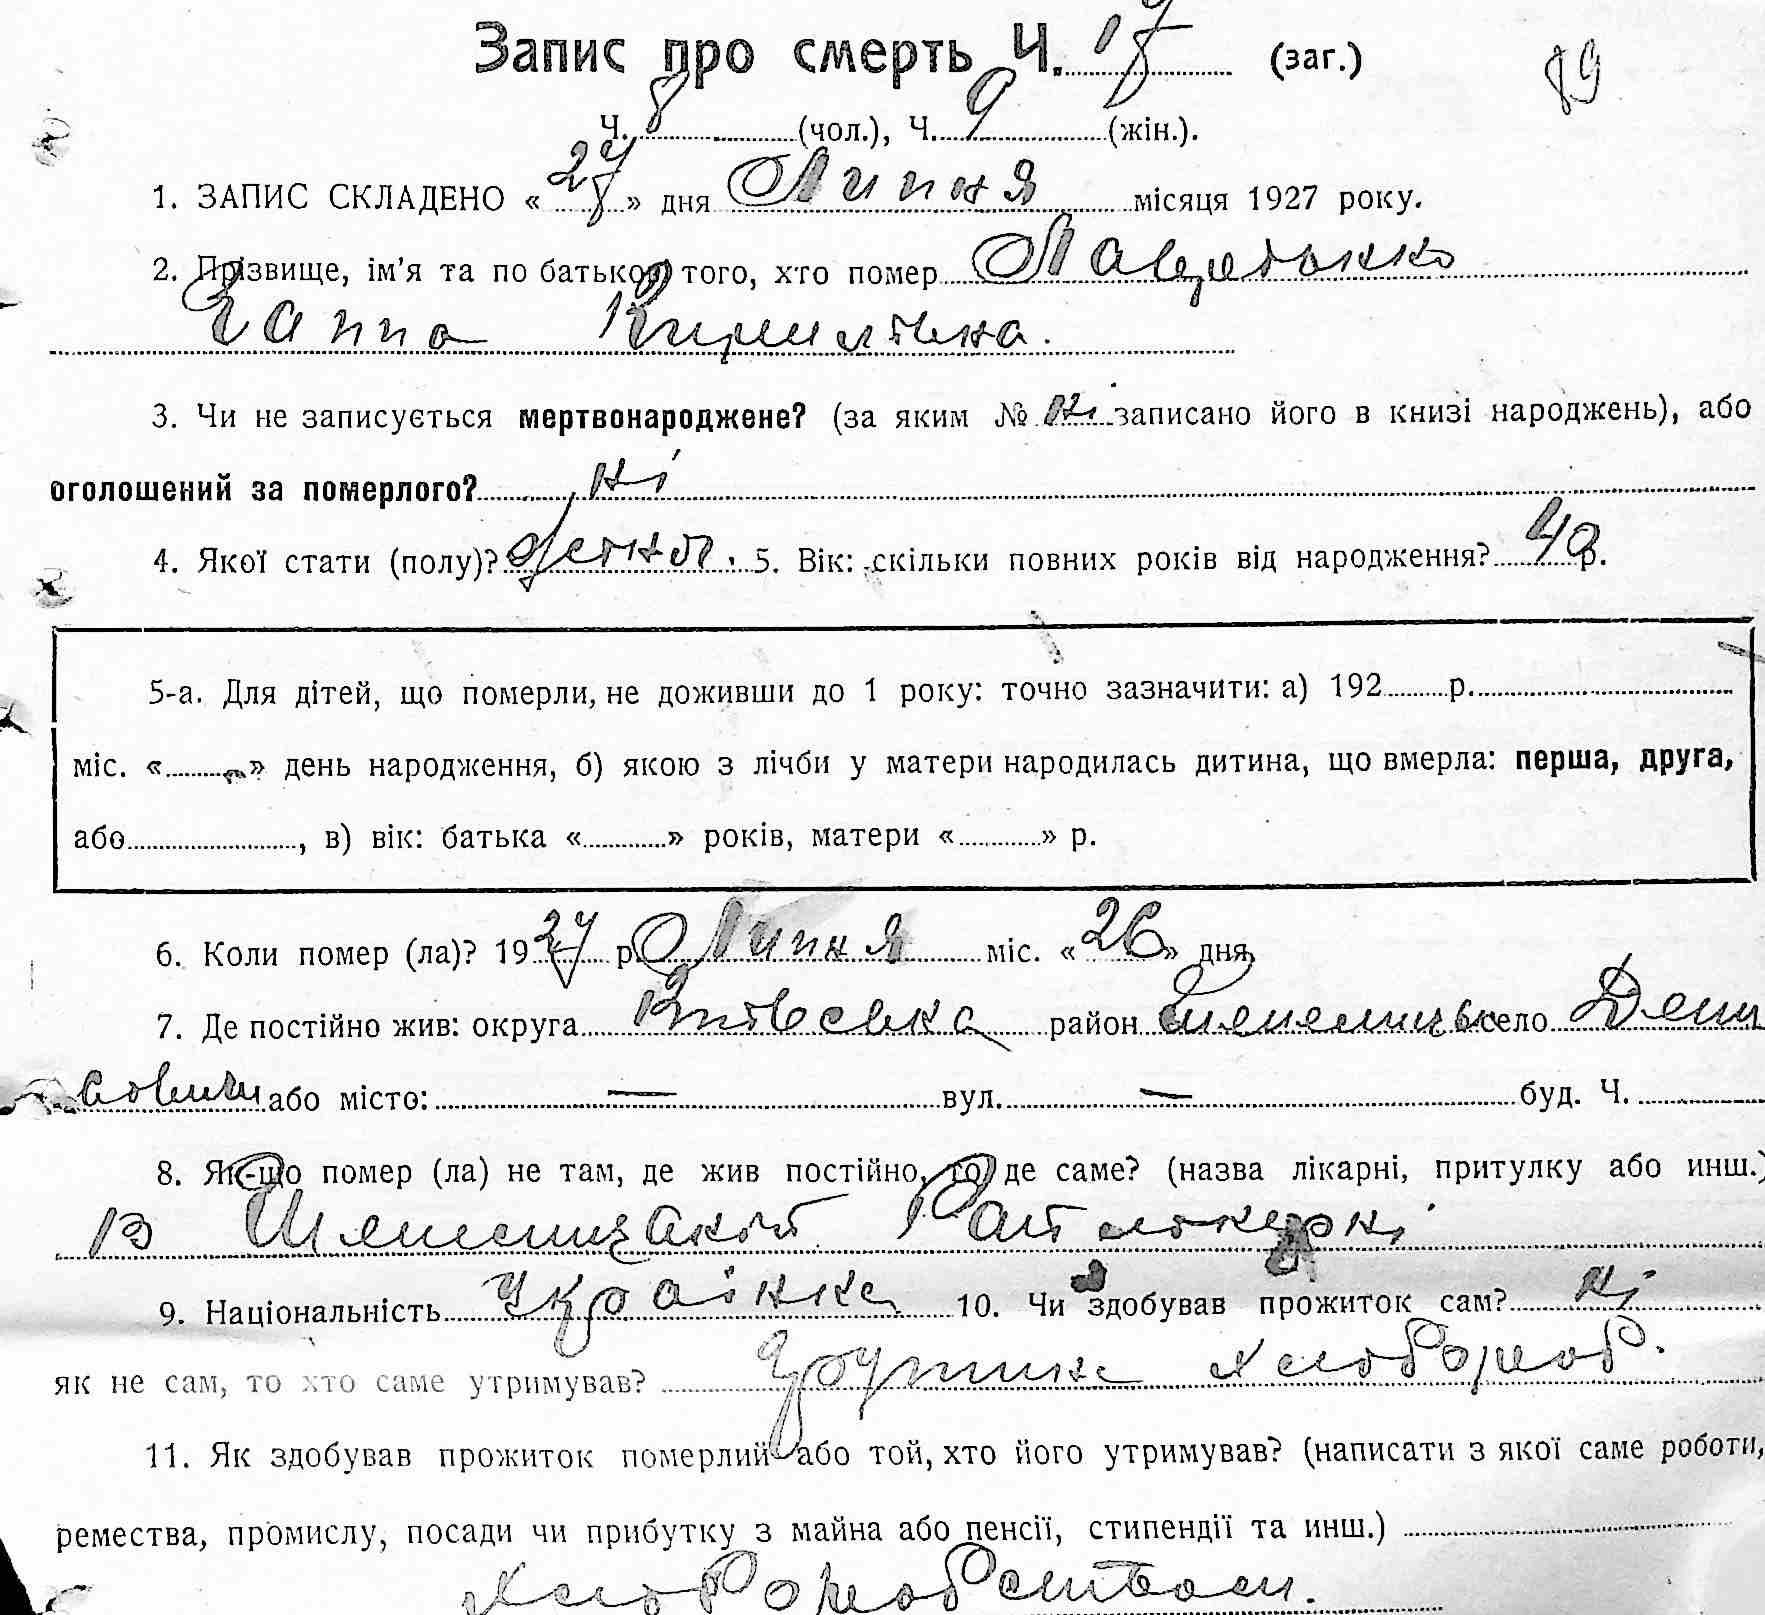 Запис про смерть Ч. 17 (заг.) 89
Ч. 8 (чол.), Ч. 9 (жін.).
1. ЗАПИС СКЛАДЕНО «27» дня Липня місяця 1927 року.
2. Прізвище, ім'я та по батькові того, хто помер
Ганна Кирилівна.
3. Чи не записується мертвонароджене? (за яким № ні записано його в книзі народжень), або
оголошений за померлого? ні
4. Якої стати (полу)? 5. Вік: скільки повних років від народження? 40 р.
5-а. Для дітей, що померли, не доживши до 1 року: точно зазначити: а) 192 р.
міс. « » день народження, б) якою з лічби у матери народилась дитина, що вмерла: перша, друга,
або , в) вік: батька « » років, матери « » р.
6. Коли помер (ла)? 1927 р. Липня міс. «26» дня
7. Де постійно жив: округа Київська район село Дени
совичи або місто: — вул. — буд. Ч.
8. Як-що помер (ла) не там, де жив постійно, то де саме? (назва лікарні, притулку або инш.)
В Шепелицькій Райлікарні
9. Національність Українка 10. Чи здобував прожиток сам? ні
як не сам, то хто саме утримував? хлібороб.
11. Як здобував прожиток померлий або той, хто його утримував? (написати з якої саме роботи,
ремества, промислу, посади чи прибутку з майна або пенсії, стипендії та инш.)
хліборобством.